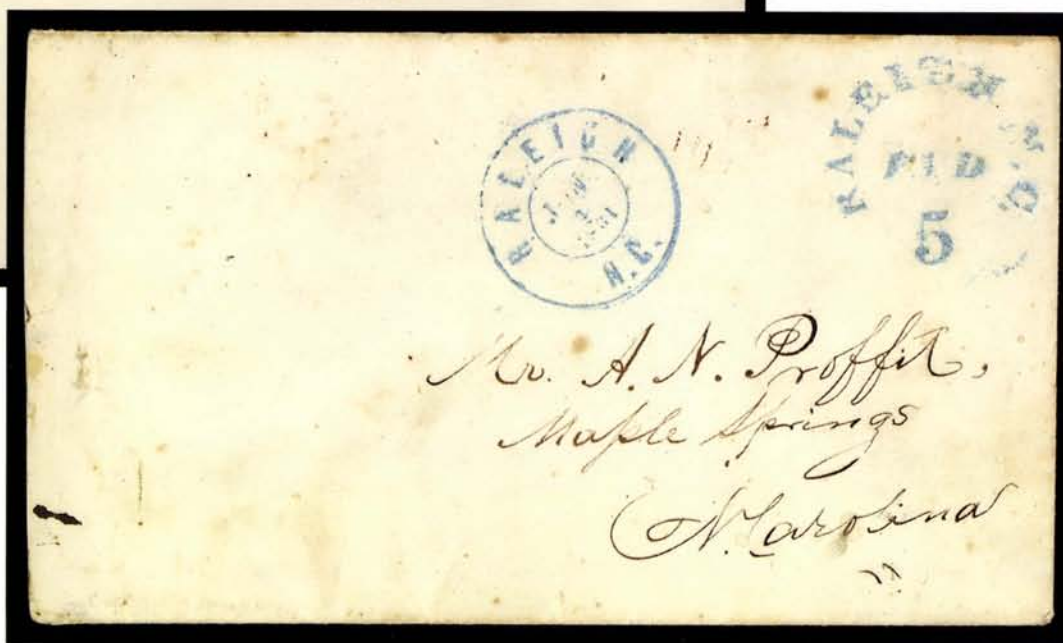 RALEIGH N.C.
1861
RALEIGH N.C.
PAID
5
Mr. A. N. Proffit,
Maple Springs
N. Carolina